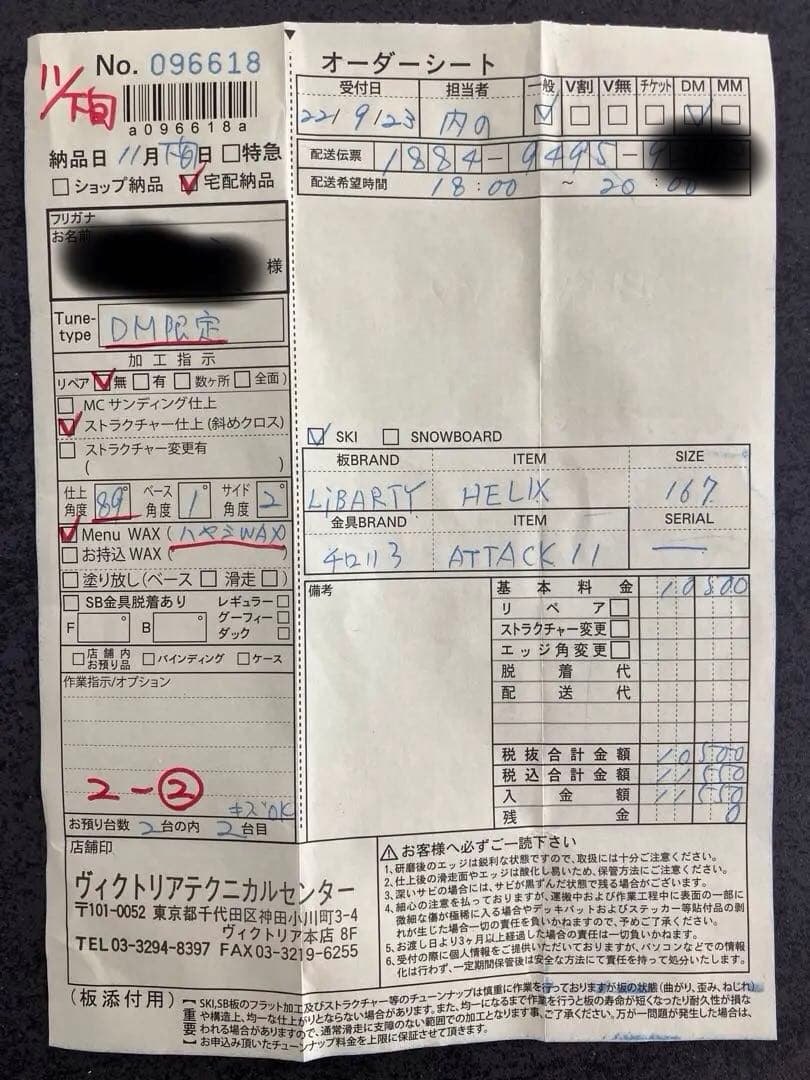 11/下旬
No. 096618
a096618a
納品日 11月下旬日 □特急
□ショップ納品 ☑宅配納品
フリガナ
お名前
様
Tune-type DM限定
加工指示
リペア ☑無 □有 □数ヶ所 □全面)
□MCサンディング仕上
☑ストラクチャー仕上(斜めクロス)
□ストラクチャー変更有
( )
仕上角度 89° ベース角度 1° サイド角度 2°
☑Menu WAX (ハヤミWAX)
□お持込WAX ( )
□塗り放し(ベース □ 滑走 □)
□SB金具脱着あり レギュラー□
F ° B ° グーフィー□
ダック □
□店舗内お預り品 □バインディング □ケース
作業指示/オプション
2-②
キズOK
お預り台数 2台の内 2台目
オーダーシート
受付日 担当者 一般 V割 V無 チケット DM MM
22/9/23 内の ☑ □ □ □ ☑ □
配送伝票 1884-9495-9
配送希望時間 18:00 ~ 20:00
☑ SKI □ SNOWBOARD
板BRAND ITEM SIZE
LiBARTY HELIX 167
金具BRAND ITEM SERIAL
チロリア ATTACK 11 —
備考
基本料金 10500
リペア□
ストラクチャー変更□
エッジ角変更□
脱着代
配送代
税抜合計金額 10500
税込合計金額 11550
入金額 11550
残金 0
店舗印
ヴィクトリアテクニカルセンター
〒101-0052 東京都千代田区神田小川町3-4
ヴィクトリア本店 8F
TEL 03-3294-8397 FAX 03-3219-6255
⚠お客様へ必ずご一読下さい
1、研磨後のエッジは鋭利な状態ですので、取扱には十分ご注意ください。
2、仕上後の滑走面やエッジは酸化し易いため、保管方法にご注意ください。
3、深いサビの場合には、サビが黒ずんだ状態で残る場合がございます。
4、細心の注意を払っておりますが、運搬中および作業工程中に表面の一部に
微細な傷が極稀に入る場合やデッキパットおよびステッカー等貼付品の剥
れが生じた場合一切の責任を負いかねますので、予めご了承ください。
5、お渡し日より3ヶ月以上経過した場合の責任は一切負いかねます。
6、受付の際に個人情報をご提供いただいておりますが、パソコンなどでの情報
化は行わず、一定期間保管後は安全な方法にて責任を持って処分いたします。
(板添付用)
重要
【SKI,SB板のフラット加工及びストラクチャー等のチューンナップは慎重に作業を行っておりますが板の状態(曲がり、歪み、ねじれ)
や構造上、均一な仕上がりとならない場合があります。また、均一になるまで作業を行うと板の寿命が短くなったり耐久性が損な
われる場合がありますので、通常滑走に支障のない範囲での加工となります事、ご了承ください。万が一問題が発生した場合は、
お申込み頂いたチューンナップ料金を上限に保証させて頂きます。】